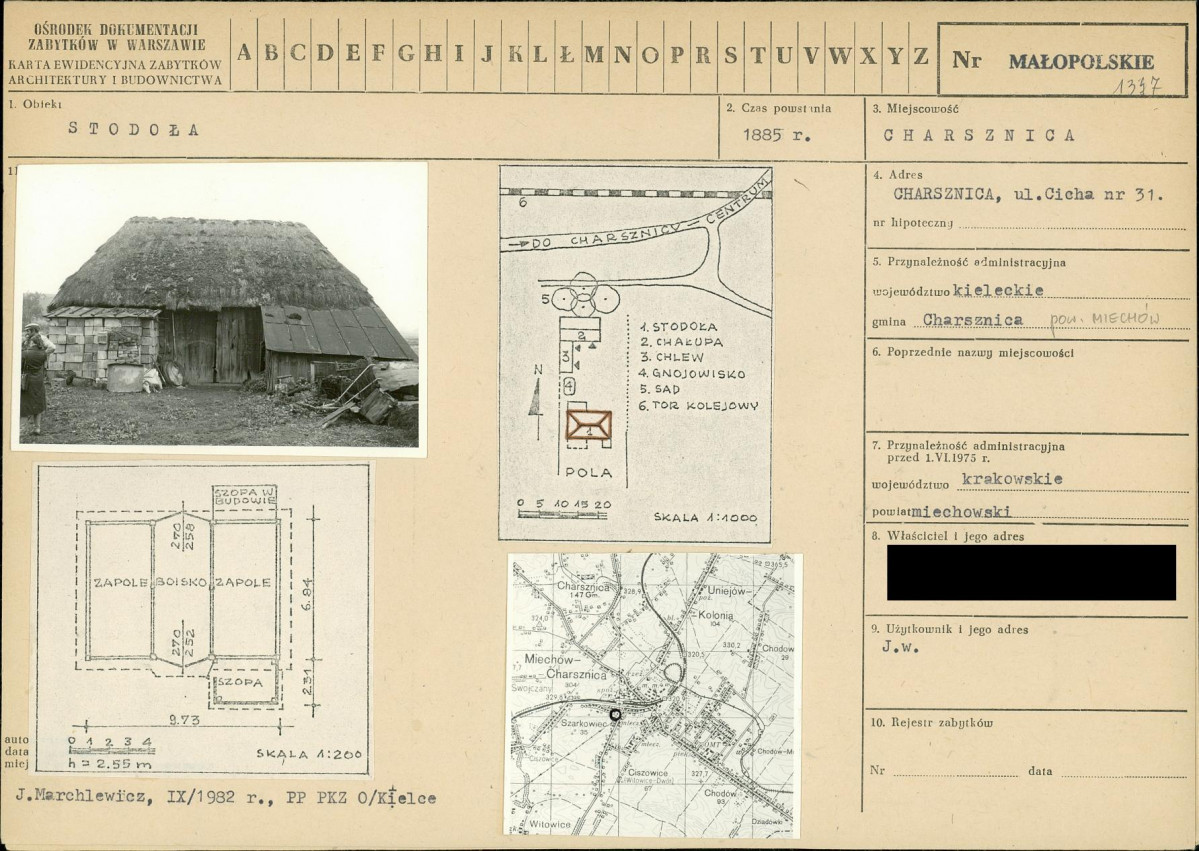 OŚRODEK DOKUMENTACJI
ZABYTKÓW W WARSZAWIE
KARTA EWIDENCYJNA ZABYTKÓW
ARCHITEKTURY I BUDOWNICTWA
A B C D E F G H I J K L Ł M N O P R S T U V W X Y Z
Nr MAŁOPOLSKIE
1347
1. Obiekt
STODOŁA
2. Czas powstania
1885 r.
3. Miejscowość
CHARSZNICA
4. Adres
CHARSZNICA, ul.Cicha nr 31.
nr hipoteczny
5. Przynależność administracyjna
województwo kieleckie
gmina Charsznica pow. MIECHÓW
6. Poprzednie nazwy miejscowości
7. Przynależność administracyjna
przed 1.VI.1975 r.
województwo krakowskie
powiat miechowski
8. Właściciel i jego adres
9. Użytkownik i jego adres
J.w.
10. Rejestr zabytków
Nr data
11
6
DO CHARSZNICY – CENTRUM
5
2
3
4
1
N
1. STODOŁA
2. CHAŁUPA
3. CHLEW
4. GNOJOWISKO
5. SAD
6. TOR KOLEJOWY
POLA
0 5 10 15 20
SKALA 1:1000
SZOPA W
BUDOWIE
270
258
ZAPOLE BOISKO ZAPOLE
6.84
270
252
SZOPA
2.31
9.73
0 1 2 3 4
h = 2.55 m
SKALA 1:200
Charsznica
147 Gm.
328,9
365,5
Uniejów-
-Kolonia
104
324,0
330,2
Chodow
29
320,5
Miechów-
Charsznica
304
Swojczany
329,6
Szarkowiec
35
Ciszowice
Ciszowice
(Witowice-Dwór)
67
327,7
Chodów-M
Chodów
93
Dziadówki
Witowice
auto
data
miej
J.Marchlewicz, IX/1982 r., PP PKZ O/Kielce